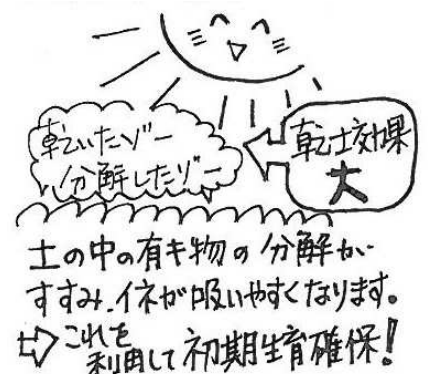 乾いたゾー
分解したゾー
乾土効果
大
土の中の有キ物の分解が
すすみ、イネが吸いやすくなります。
⇨これを
利用して初期生育確保!